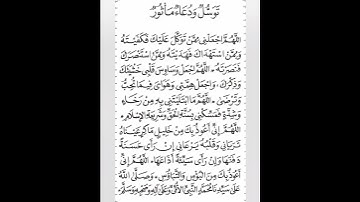 تَوَسُّلٌ وَدُعَاءٌ مَأْثُورٌ
اَللَّهُمَّ اجْعَلْنِي مِمَّنْ تَوَكَّلَ عَلَيْكَ فَكَفَيْتَهُ
وَمِمَّنْ اسْتَهْدَاكَ فَهَدَيْتَهُ وَمِمَّنْ اسْتَنْصَرَكَ
فَنَصَرْتَهُ، اَللَّهُمَّ اجْعَلْ وَسَاوِسَ قَلْبِي خَشْيَتَكَ
وَذِكْرَكَ، وَاجْعَلْ هِمَّتِي وَهَوَايَ فِيمَا تُحِبُّ
وَتَرْضَى، اَللَّهُمَّ مَا ابْتَلَيْتَنِي بِهِ مِنْ رَخَاءٍ
وَشِدَّةٍ فَمَسِّكْنِي بِسُنَّةِ الْحَقِّ وَشَرِيعَةِ الْإِسْلَامِ،
اَللَّهُمَّ إِنِّي أَعُوذُ بِكَ مِنْ خَلِيلٍ مَاكِرٍ عَيْنَاهُ
تَرَيَانِي وَقَلْبُهُ يَرْعَانِي إِنْ رَأَى حَسَنَةً
دَفَنَهَا وَإِنْ رَأَى سَيِّئَةً أَذَاعَهَا، اَللَّهُمَّ إِنِّي
أَعُوذُ بِكَ مِنَ الْبُؤْسِ وَالتَّبَاؤُسِ، وَصَلَّى اللهُ
عَلَى سَيِّدِنَا مُحَمَّدٍ النَّبِيِّ الْأُمِّيِّ وَعَلَى آلِهِ وَصَحْبِهِ وَسَلَّمَ،